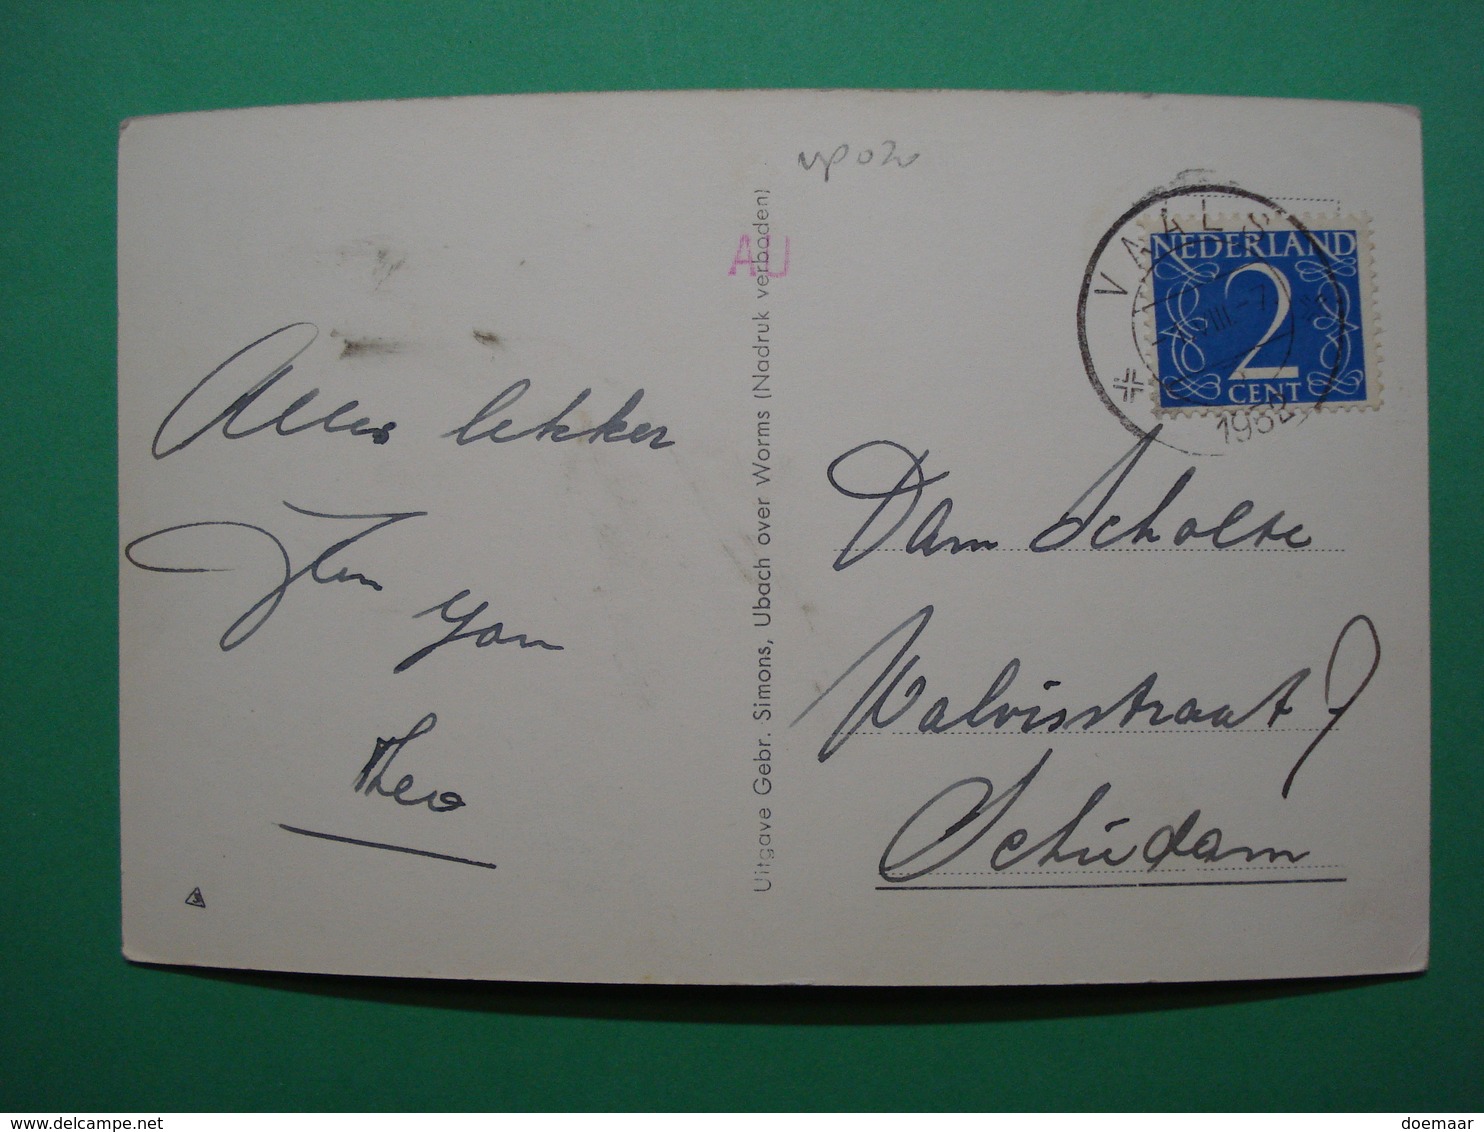 Alles lekker
Jan
Theo
Uitgave Gebr. Simons, Ubach over Worms (Nadruk verboden)
AU
VAALS
VIII.-7
1952
NEDERLAND
2
CENT
Dam Scholte
Walvisstraat 7
Schiedam
delcampe.net
doemaar